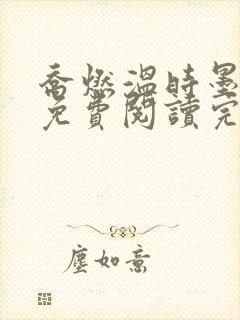 喬燃溫時墨
免費閱讀完
塵如意